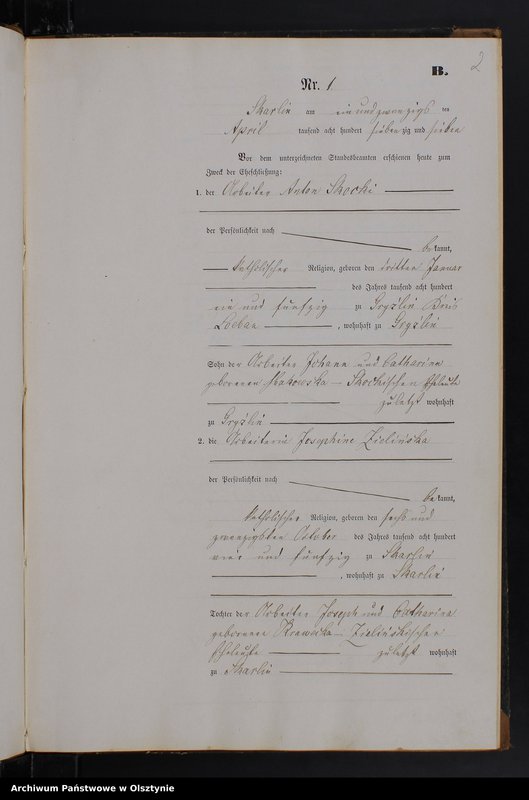 B.
2
Nr. 1
Skarlin am ein und zwanzigs ten
April tausend acht hundert sieben zig und sieben
Vor dem unterzeichneten Standesbeamten erschienen heute zum
Zweck der Eheschließung:
1. der Arbeiter Anton Skocki
der Persönlichkeit nach
bekannt,
katholischer Religion, geboren den dritten Januar
des Jahres tausend acht hundert
ein und fünfzig zu Gryźlin Kreis
Loebau, wohnhaft zu Gryźlin
Sohn der Arbeiter Johann und Catharina
geborenen Skockischen Eheleute
zuletzt wohnhaft
zu Gryźlin
2. die Arbeiterin Josephine Zielińska
der Persönlichkeit nach
bekannt,
katholischer Religion, geboren den sechs und
zwanzigsten October des Jahres tausend acht hundert
vier und fünfzig zu Skarlin
, wohnhaft zu Skarlin
Tochter der Arbeiter Joseph und Catharina
geborenen Zielińskischen
Eheleute zuletzt wohnhaft
zu Skarlin
Archiwum Państwowe w Olsztynie